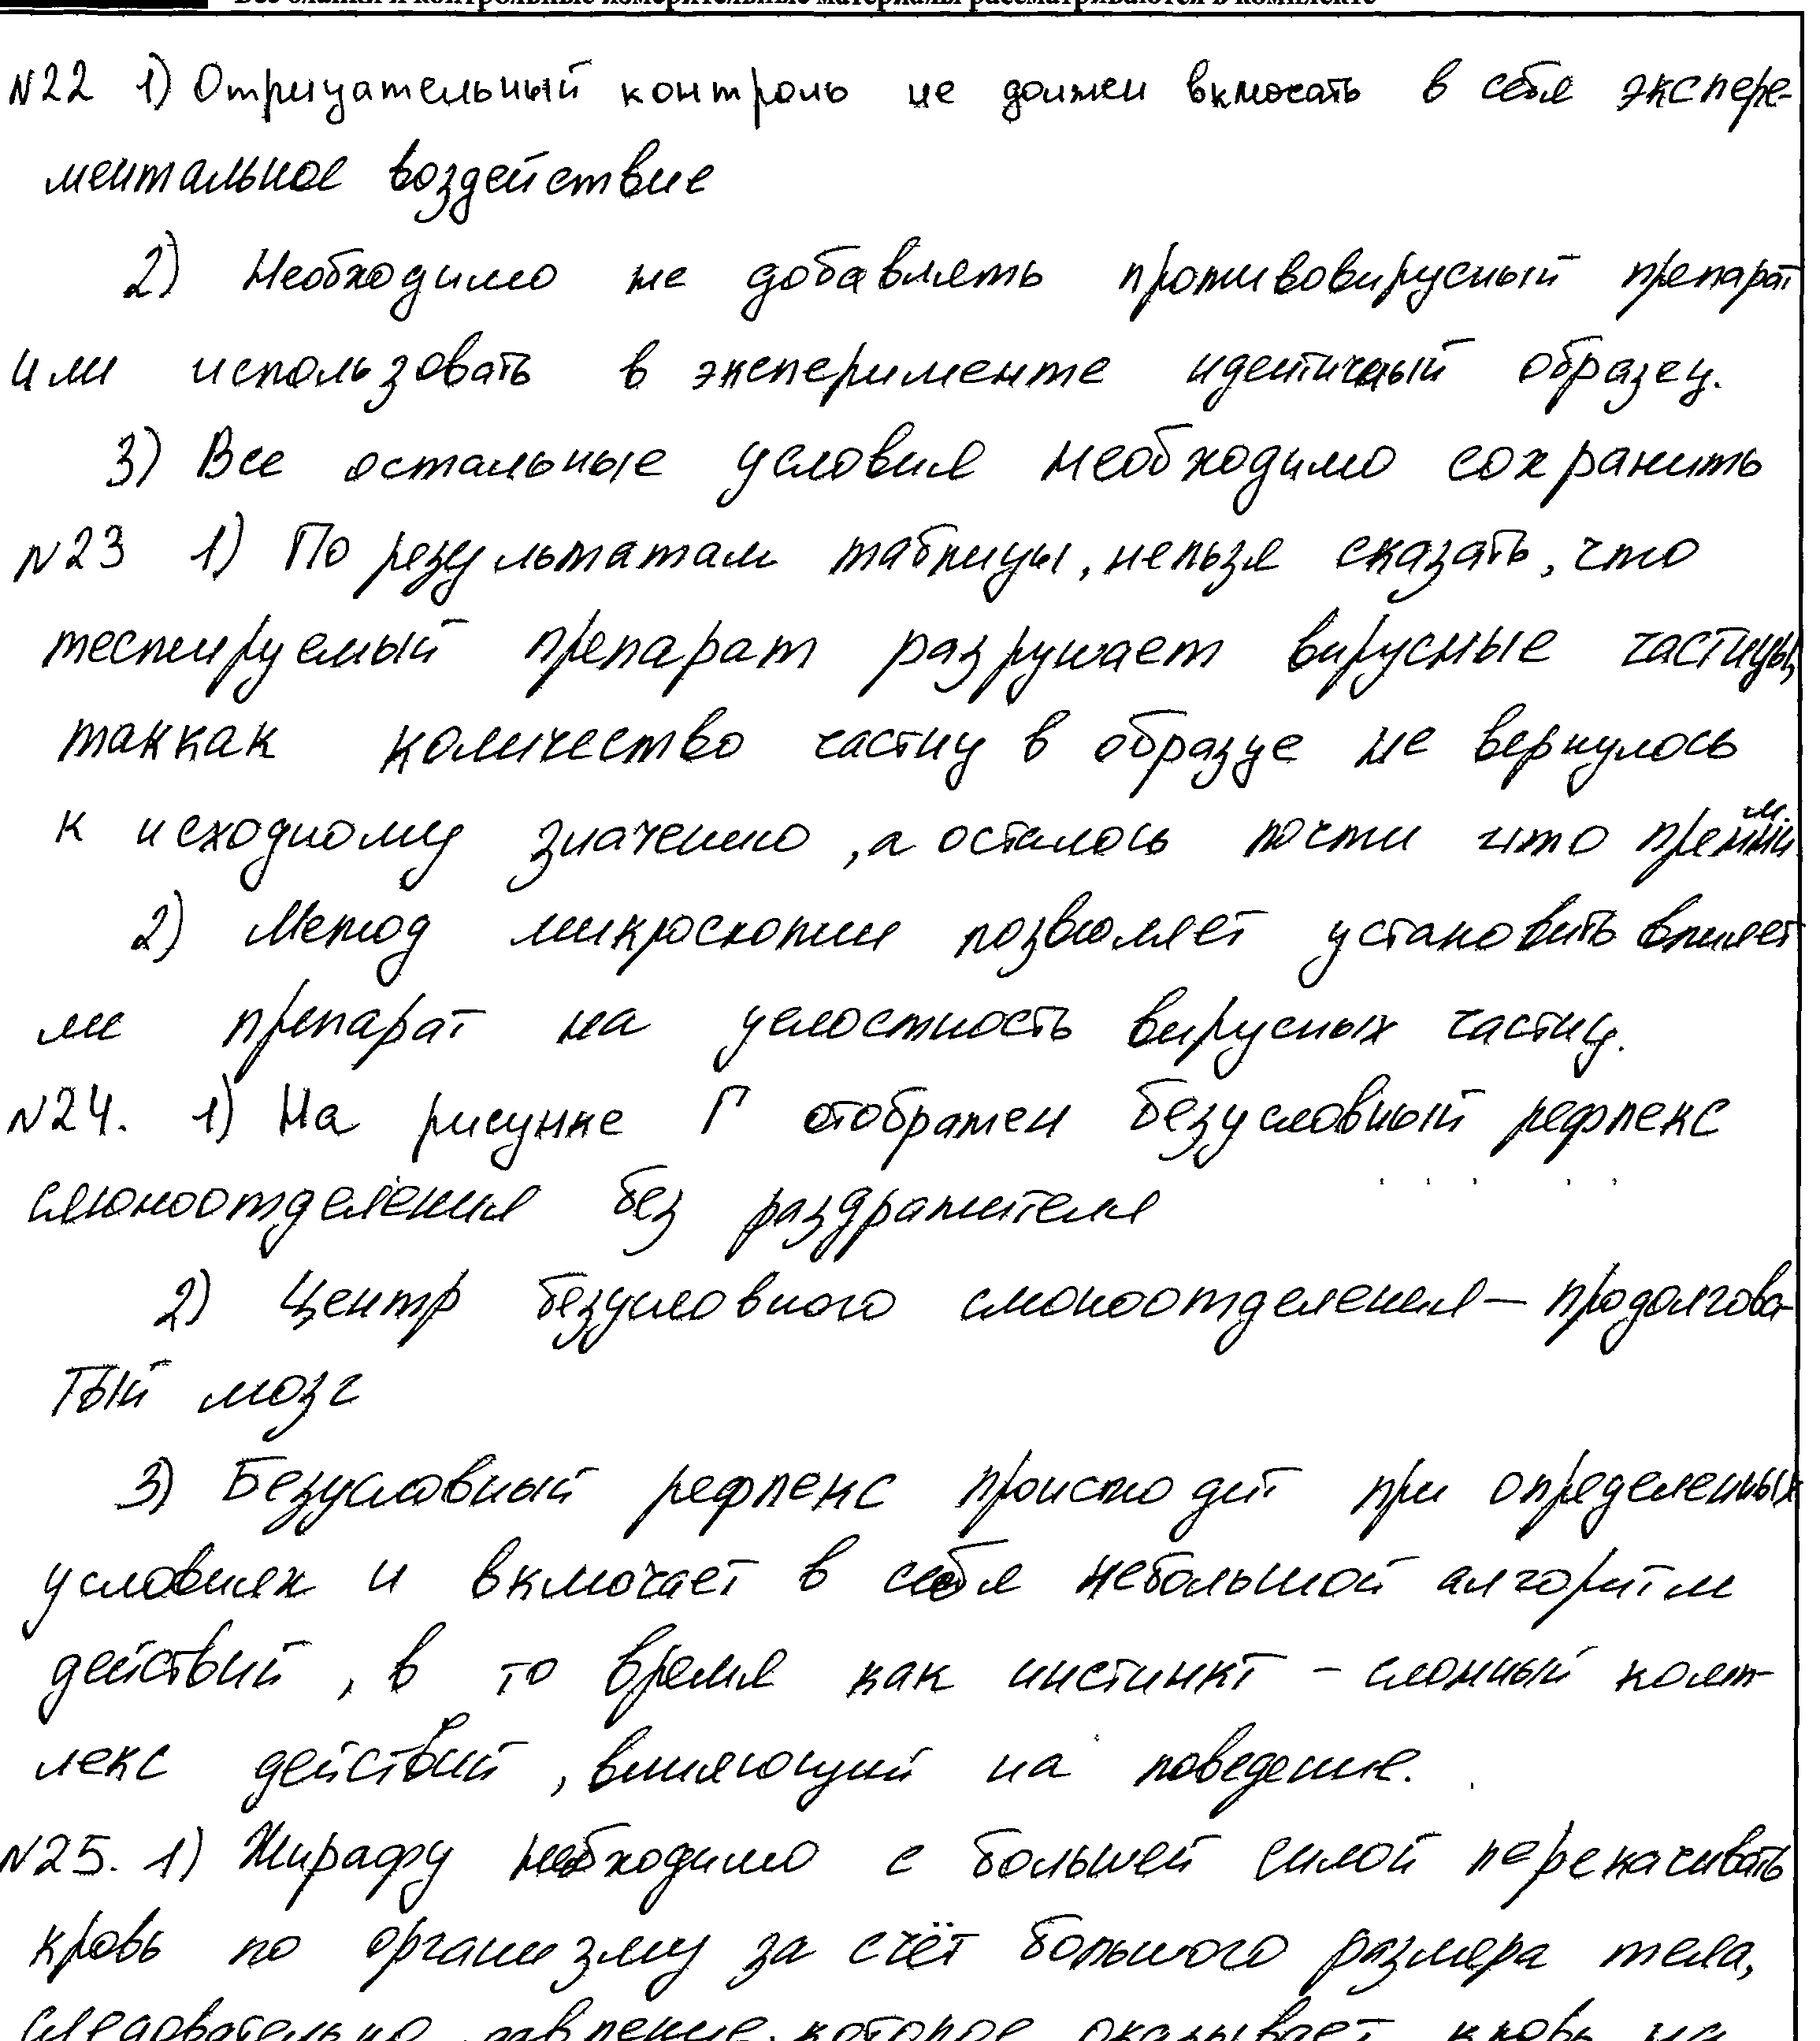 Все бланки и контрольные измерительные материалы рассматриваются в комплекте
N22 1) Отрицательный контроль не должен включать в себя экспере-
ментальное воздействие
2) Необходимо не добавлять противовирусный препарат
или использовать в эксперименте идентичный образец.
3) Все остальные условия необходимо сохранить
N23 1) По результатам таблицы, нельзя сказать, что
тестируемый препарат разрушает вирусные частицы,
таккак количество частиц в образце не вернулось
к исходному значению, а осталось почти что
2) Метод микроскопии позволяет установить влияет
ли препарат на целостность вирусных частиц.
N24. 1) На рисунке Г отображен безусловный рефлекс
слюноотделения без раздражителя
2) Центр безусловного слюноотделения – продолгова-
тый мозг
3) Безусловный рефлекс происходит при определенных
условиях и включает в себя небольшой алгоритм
действий, в то время как инстинкт – сложный комп-
лекс действий, влияющий на поведение.
N25. 1) Жирафу необходимо с большей силой перекачивать
кровь по организму за счёт большого размера тела,
следовательно давление, которое оказывает кровь на